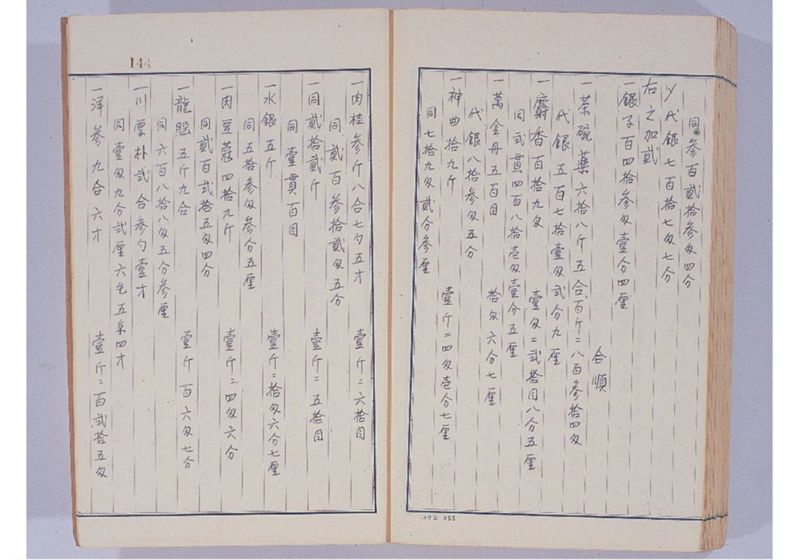 同参百貳拾参匁四分
〆代銀七百拾七匁七分
右之加貳
一銀子百四拾参匁壹分四厘
合順
一茶碗藥六拾八斤五合百斤ニ八百参拾四匁
代銀五百七拾壹匁貳分九厘
一麝香百拾九匁 壹匁ニ弐拾目八分五厘
同弐貫四百八拾壱匁壹分五厘
一萬金丹五百目 拾匁六分七厘
代銀八拾参匁五分
一神曲拾九斤 壹斤ニ四匁壱分七厘
同七拾九匁貳分参厘
144
一肉桂参斤八合七勺五才 壹斤ニ六拾目
同貳百参拾貳匁五分
一同貳拾貳斤 壹斤ニ五拾目
同壹貫百目
一水銀五斤 壹斤ニ拾匁六分七厘
同五拾参匁参分五厘
一肉豆蔻四拾九斤 壹斤ニ四匁六分
同貳百貳拾五匁四分
一龍腦五斤九合 壹斤百六匁七分
同六百八拾八匁五分参厘
一川厚朴弐合参勺壹才
同壹匁九分弐厘六毛五糸四才
参九合六才 壹斤ニ百弐拾五匁